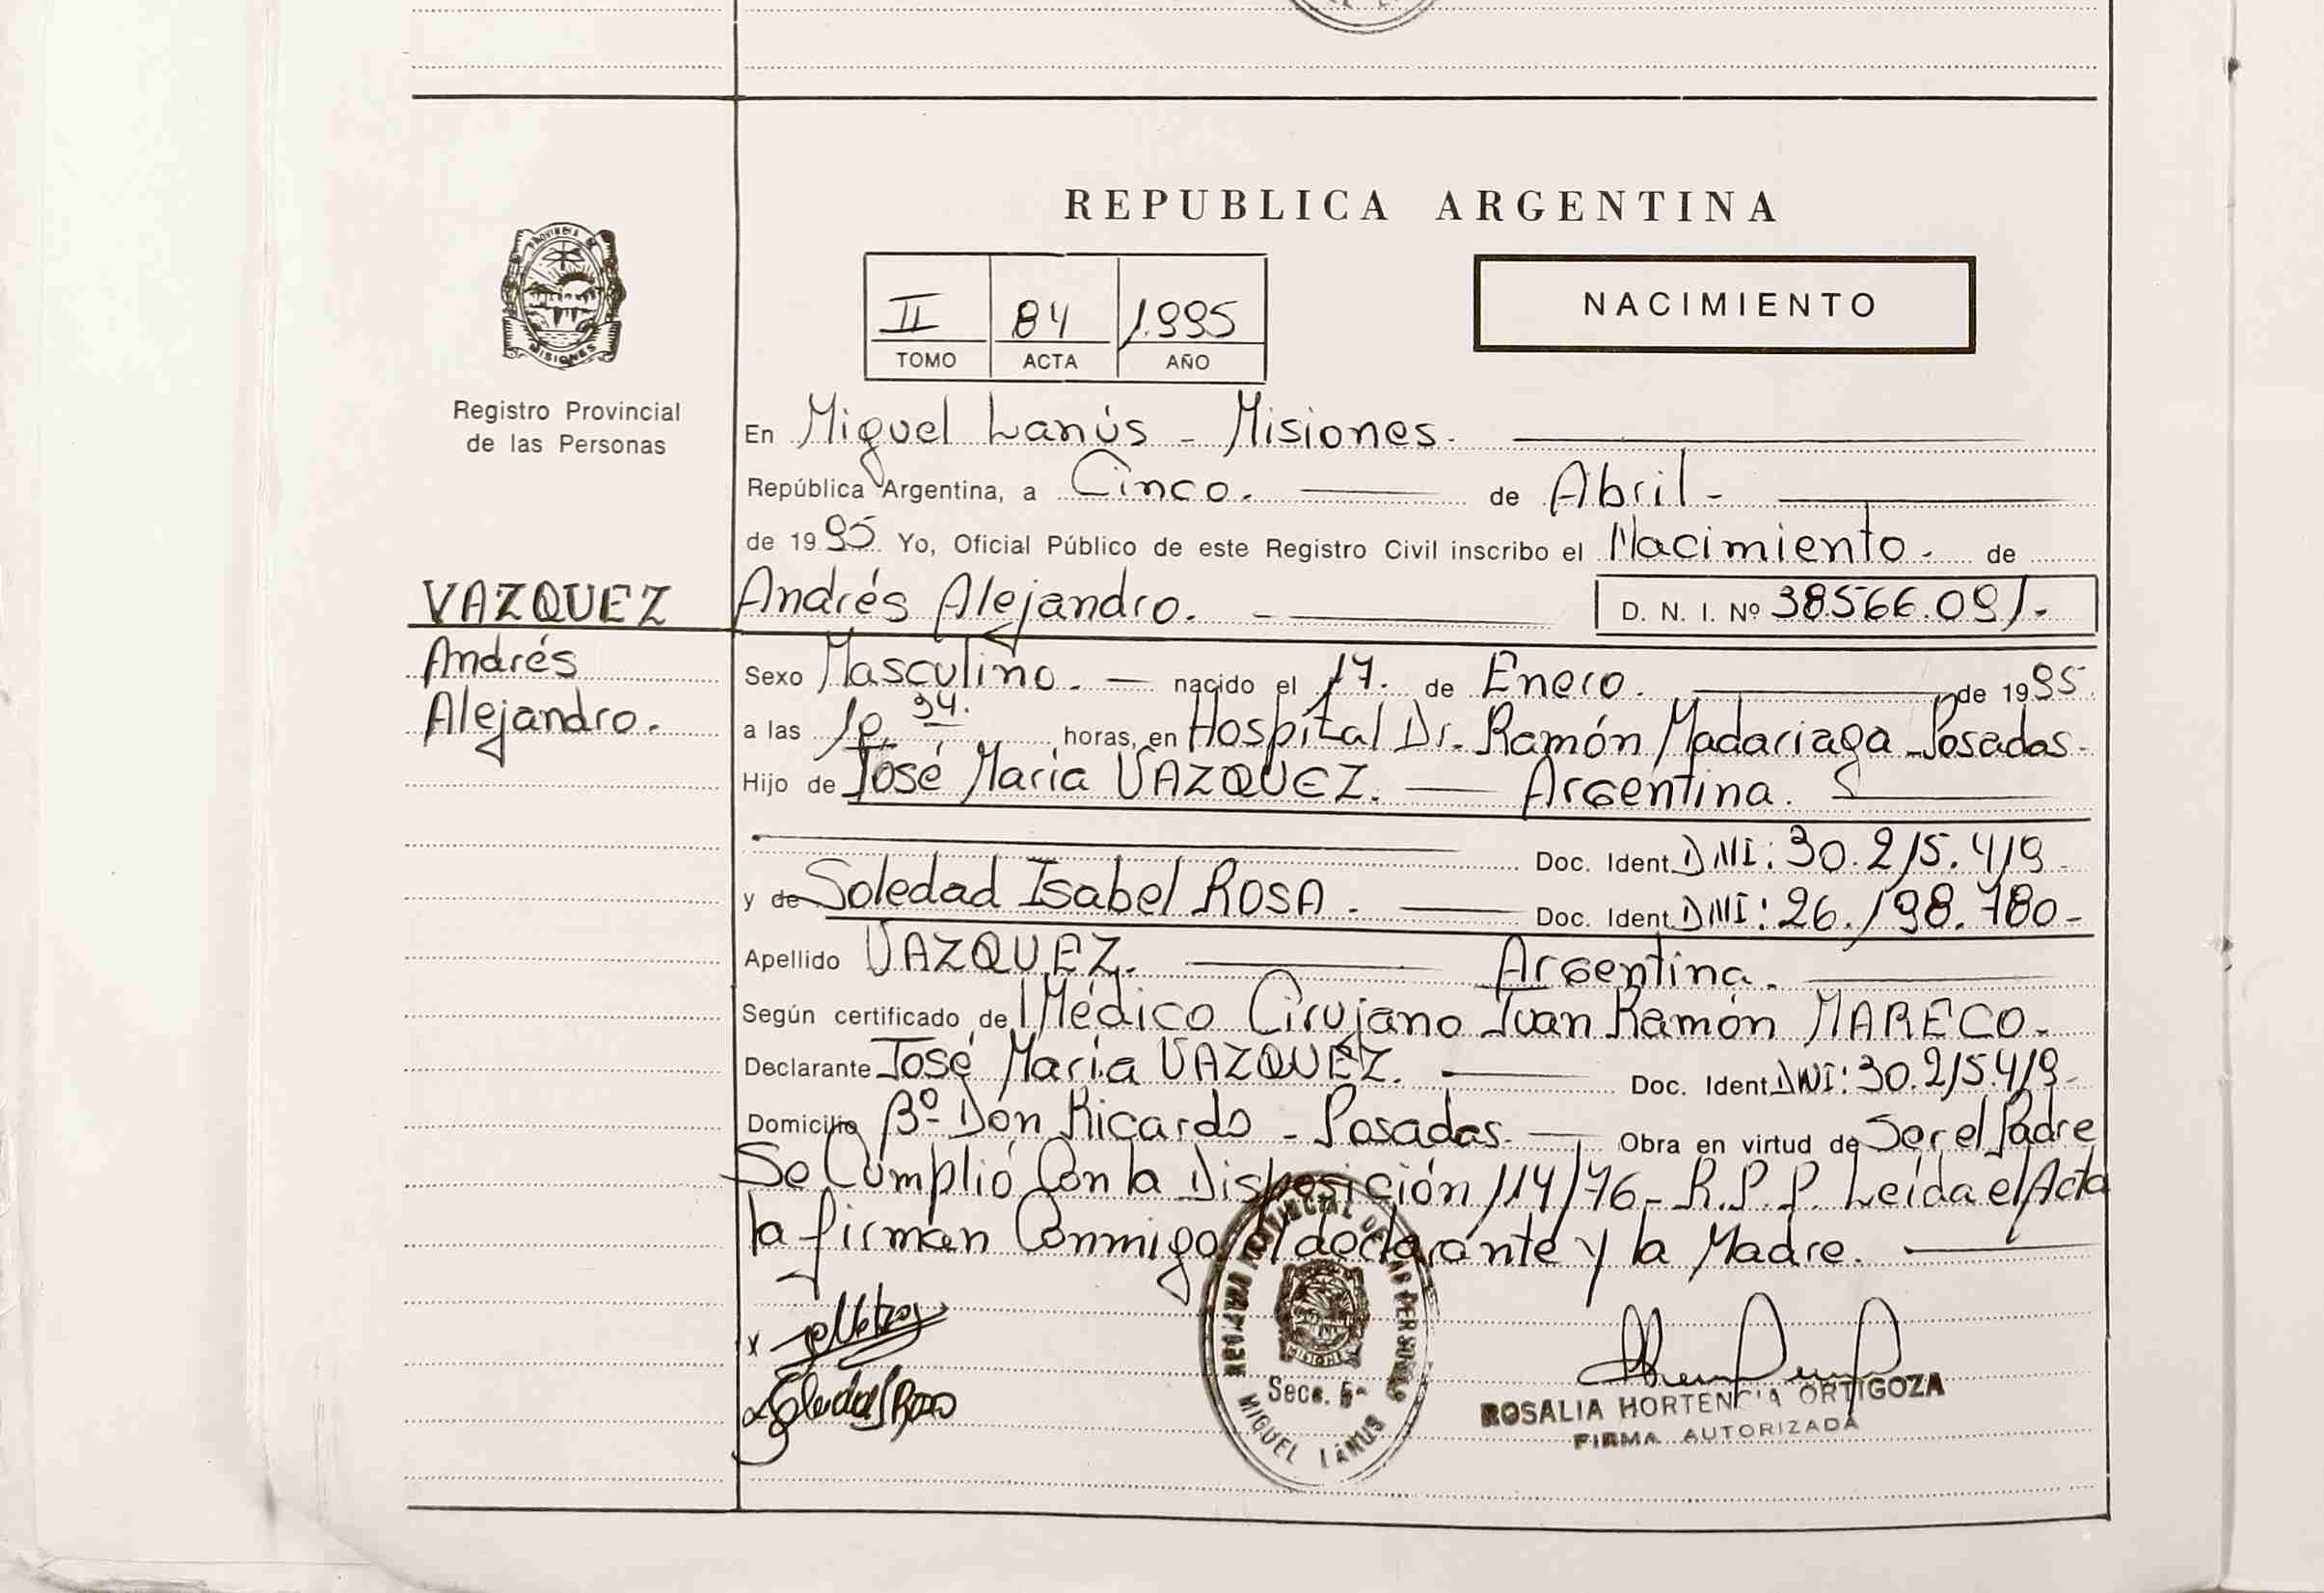 REPUBLICA ARGENTINA
PROVINCIA DE
MISIONES
Registro Provincial
de las Personas
II 84 1.995
TOMO ACTA AÑO
NACIMIENTO
En Miguel Lanús - Misiones.
República Argentina, a Cinco. de Abril-
de 1995 Yo, Oficial Público de este Registro Civil inscribo el Nacimiento. de
VAZQUEZ
Andrés
Alejandro.
Andrés Alejandro. - D. N. I. Nº 38.566.091.-
Sexo Masculino. nacido el 17. de Enero. de 1995
a las 10 34. horas, en Hospital Dr. Ramón Madariaga - Posadas-
Hijo de José María VAZQUEZ. Argentina.
Doc. Ident. DNI: 30.215.419-
y de Soledad Isabel ROSA. Doc. Ident. DNI: 26.198.780-
Apellido VAZQUEZ. Argentina.
Según certificado de Médico Cirujano Juan Ramón MARECO-
Declarante José María VAZQUEZ. Doc. Ident. DNI: 30.215.419-
Domicilio Bº Don Ricardo - Posadas. Obra en virtud de Ser el Padre
Se Cumplió Con la Disposición 114/76- R.P.P. Leída el Acta
la firman Conmigo el declarante y la Madre.
x
REGISTRO PROVINCIAL DE LAS PERSONAS
MISIONES
Secc. 5ª
MIGUEL LANUS
ROSALIA HORTENCIA ORTIGOZA
FIRMA AUTORIZADA